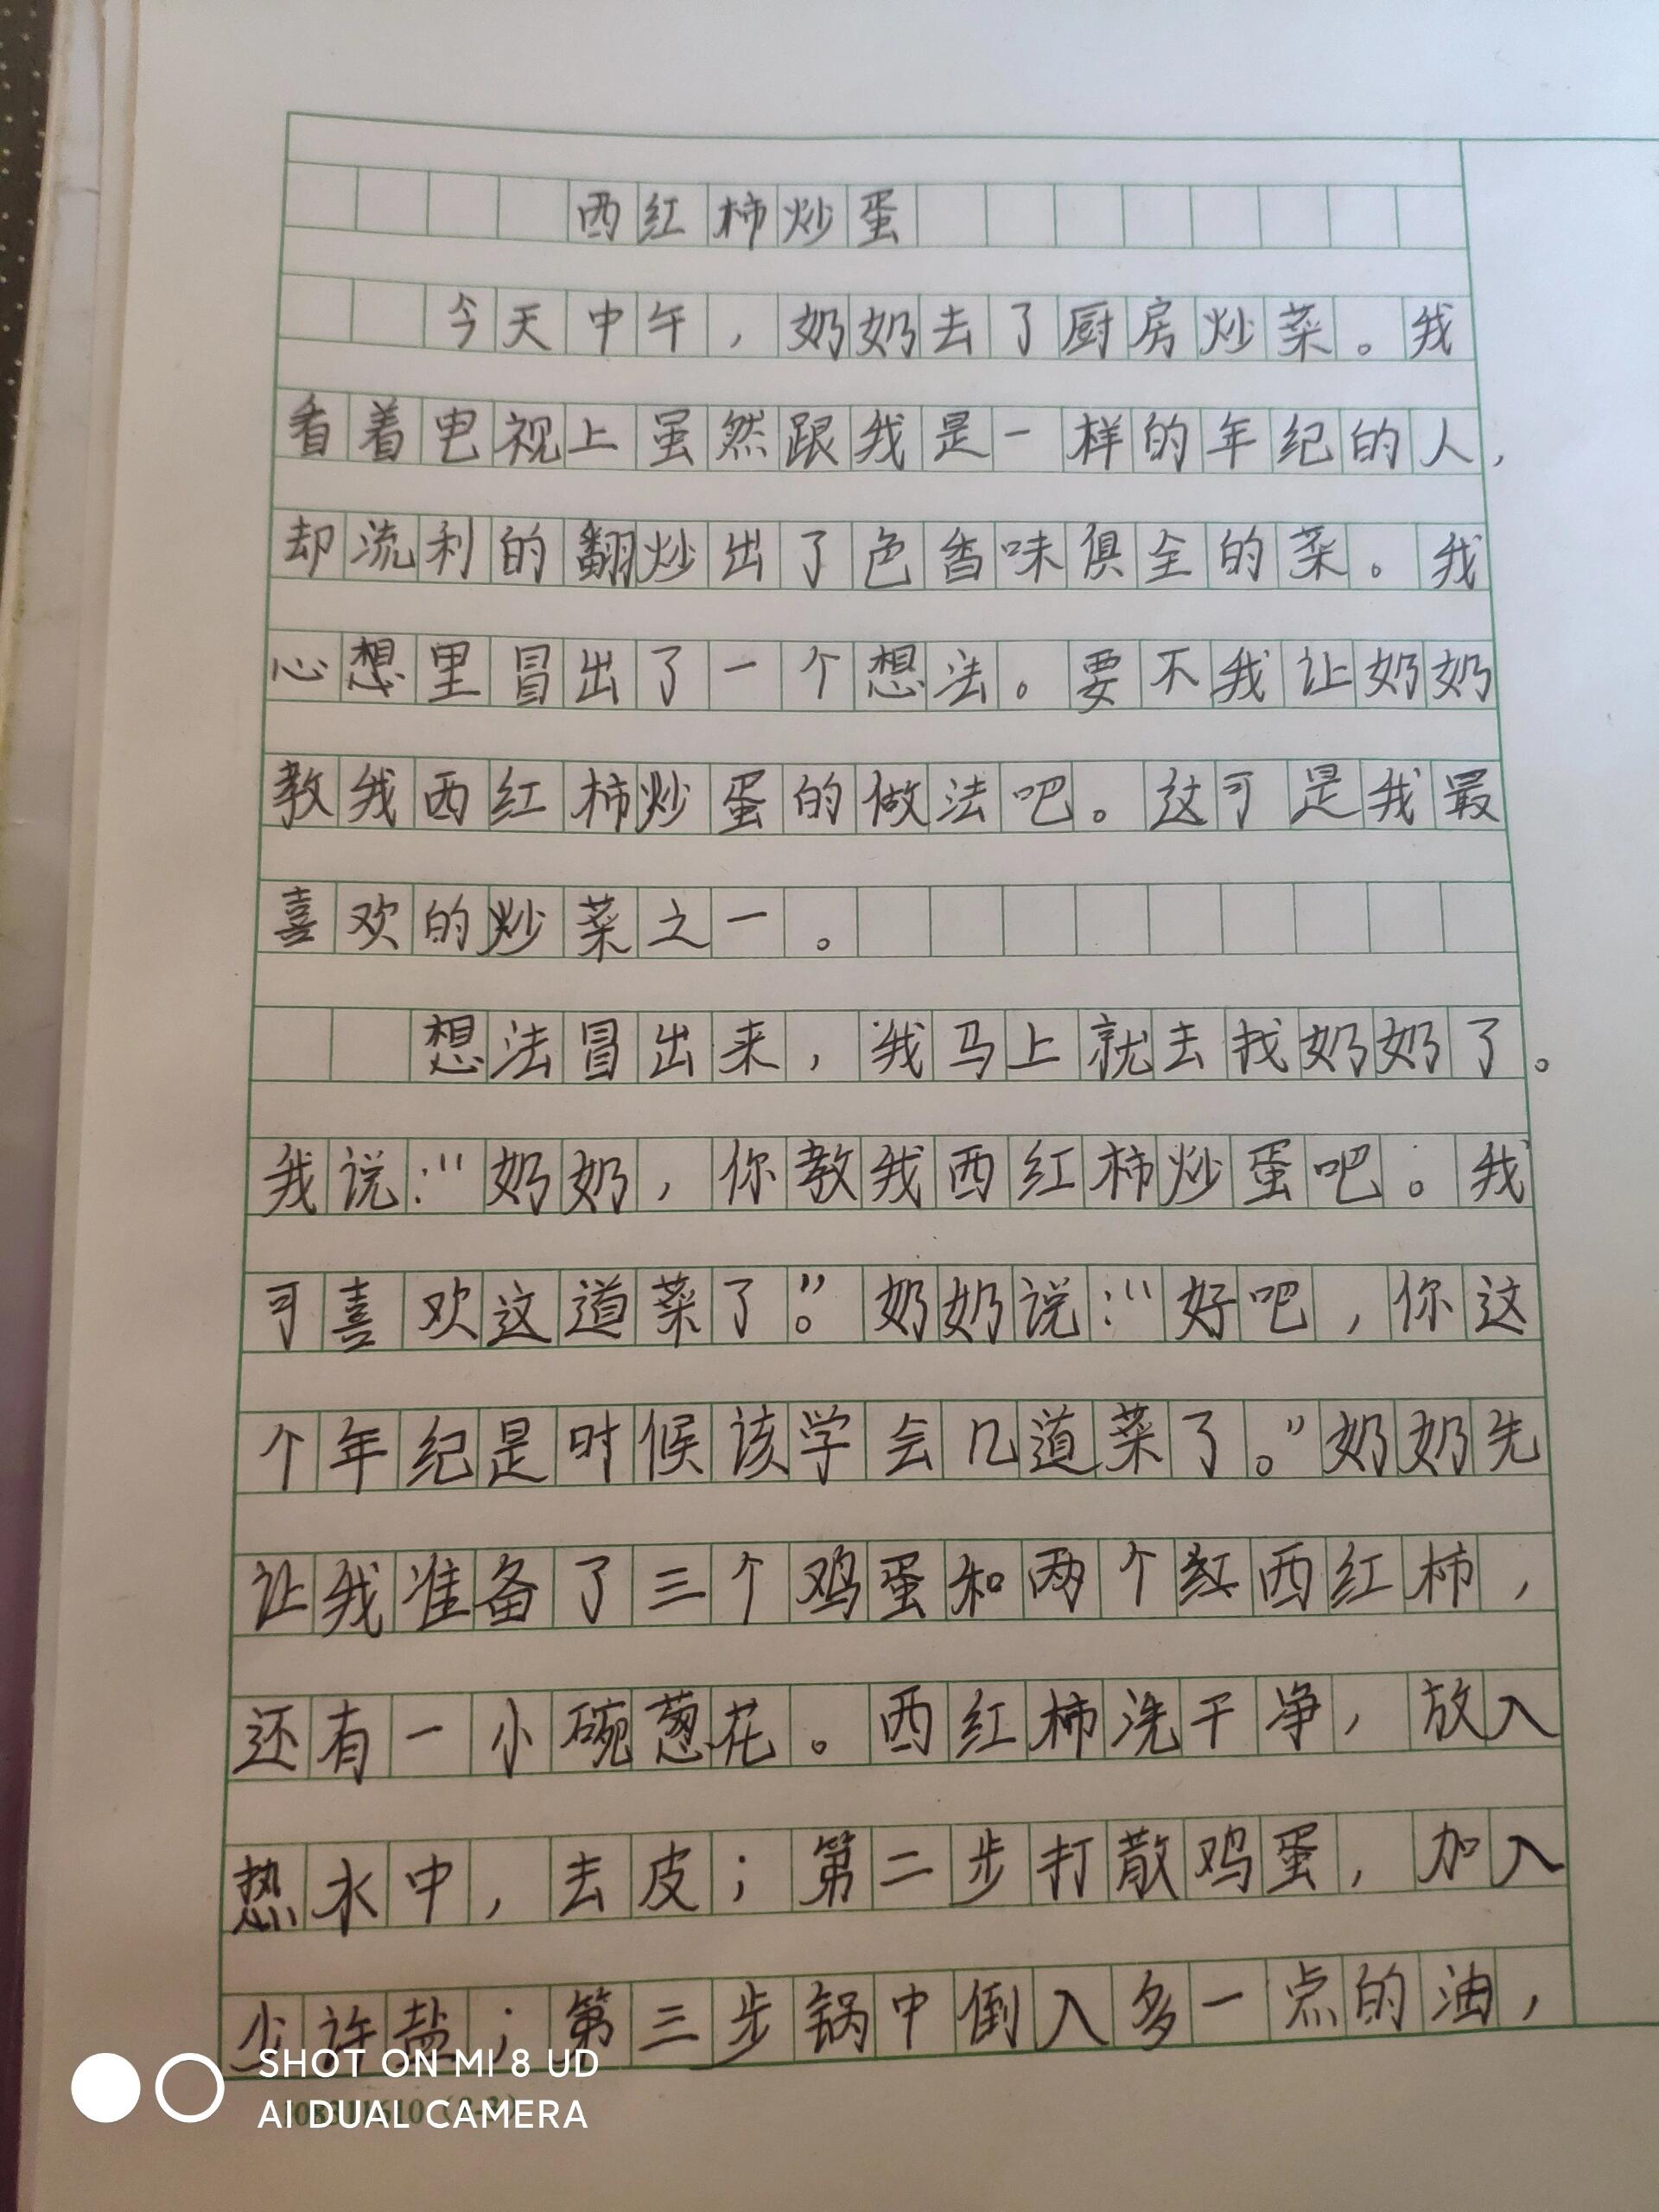 西红柿炒蛋
今天中午，奶奶去了厨房炒菜。我
看着电视上虽然跟我是一样的年纪的人，
却流利的翻炒出了色香味俱全的菜。我
心想里冒出了一个想法。要不我让奶奶
教我西红柿炒蛋的做法吧。这可是我最
喜欢的炒菜之一。
想法冒出来，我马上就去找奶奶了。
我说：“奶奶，你教我西红柿炒蛋吧。我
可喜欢这道菜了。”奶奶说：“好吧，你这
个年纪是时候该学会几道菜了。”奶奶先
让我准备了三个鸡蛋和两个红西红柿，
还有一小碗葱花。西红柿洗干净，放入
热水中，去皮；第二步打散鸡蛋，加入
少许盐；第三步锅中倒入多一点的油，
SHOT ON MI 8 UD
AI DUAL CAMERA